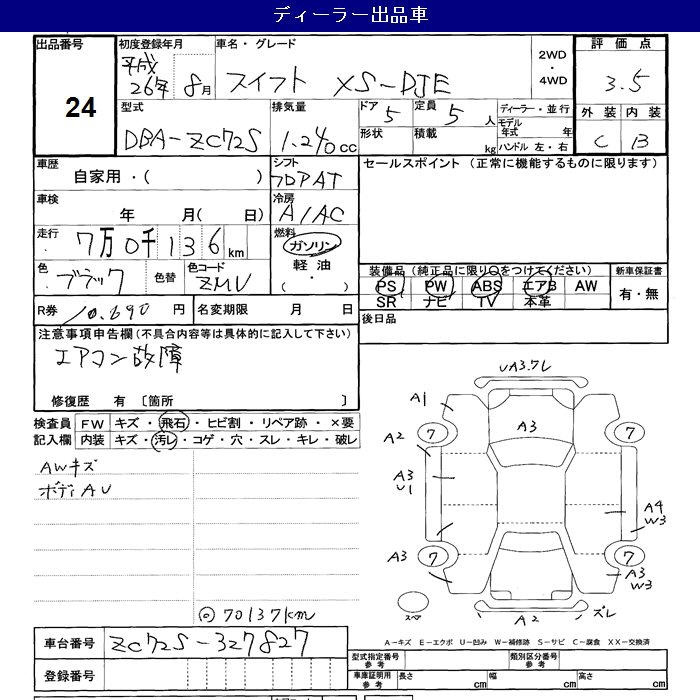 ディーラー出品車
出品番号 初度登録年月 車名・グレード 2WD・4WD 評価点
24 平成26年8月 スイフト XS-DJE 3.5
型式 排気量 ドア 定員 ディーラー・並行 外装 内装
DBA-ZC72S 1.240cc 5 5人 モデル年式 年 C B
形状 積載 kg ハンドル 左・右
車歴 シフト セールスポイント (正常に機能するものに限ります)
自家用・( ) フロアAT
車検 冷房
年 月( 日) A/AC
走行 燃料
7万0千136km ガソリン
軽油
( ・ )
色 ブラック 色替 色コード ZMV
装備品 (純正品に限り○をつけてください) 新車保証書
PS PW ABS エアB AW 有・無
SR ナビ TV 本革
R券 10.690円 名変期限 月 日 後日品
注意事項申告欄(不具合内容等は具体的に記入して下さい)
エアコン故障
修復歴 有 〔箇所 〕
検査員 FW キズ・飛石・ヒビ割・リペア跡・×要
記入欄 内装 キズ・汚レ・コゲ・穴・スレ・キレ・破レ
AWキズ
ボディAU
UA3.7レ
A1
A3
A2 7 7
A3
U1
A4
W3
A3 7 7 A3
W3
スペア A2 ズレ
◎70137km
A-キズ E-エクボ U-凹み W-補修跡 S-サビ C-腐食 XX-交換済
車台番号 ZC72S-327827
型式指定番号 参考 類別区分番号 参考
登録番号 車庫証明用 参考 長さ cm 幅 cm 高さ cm